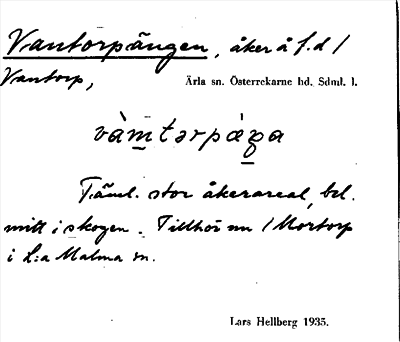 Vantorpängen, åker å f.d /
Vantorp,
Ärla sn. Österrekarne hd. Sdml. l.
vàm̲tɘrpáŋ̲a
Täml. stor åkerareal, bel.
mitt i skogen. Tillhör nu / Mortorp
i L:a Malma sn.
Lars Hellberg 1935.